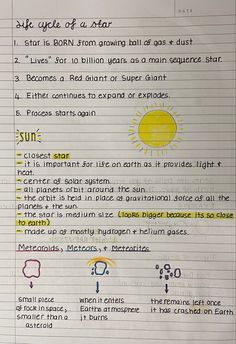 DATE
Life cycle of a star
1. Star is BORN from growing ball of gas + dust
2. "Lives" for 10 billion years as a main sequence star
3. Becomes a Red Giant or Super Giant
4. Either continues to expand or explodes.
5. Process starts again
sun
- closest star
- it is important for life on earth as it provides light + heat.
- center of solar system
- all planets orbit around the sun
- the orbit is held in place of gravitational force of all the
planets + the sun.
- the star is medium size (looks bigger because its so close
to earth)
- made up of mostly hydrogen + helium gases.
Meteoroids, Meteors, + Meteorites
small piece
of rock in space,
smaller than a
asteroid
when it enters
Earths atmosphere
it burns
the remains left once
it has crashed on Earth